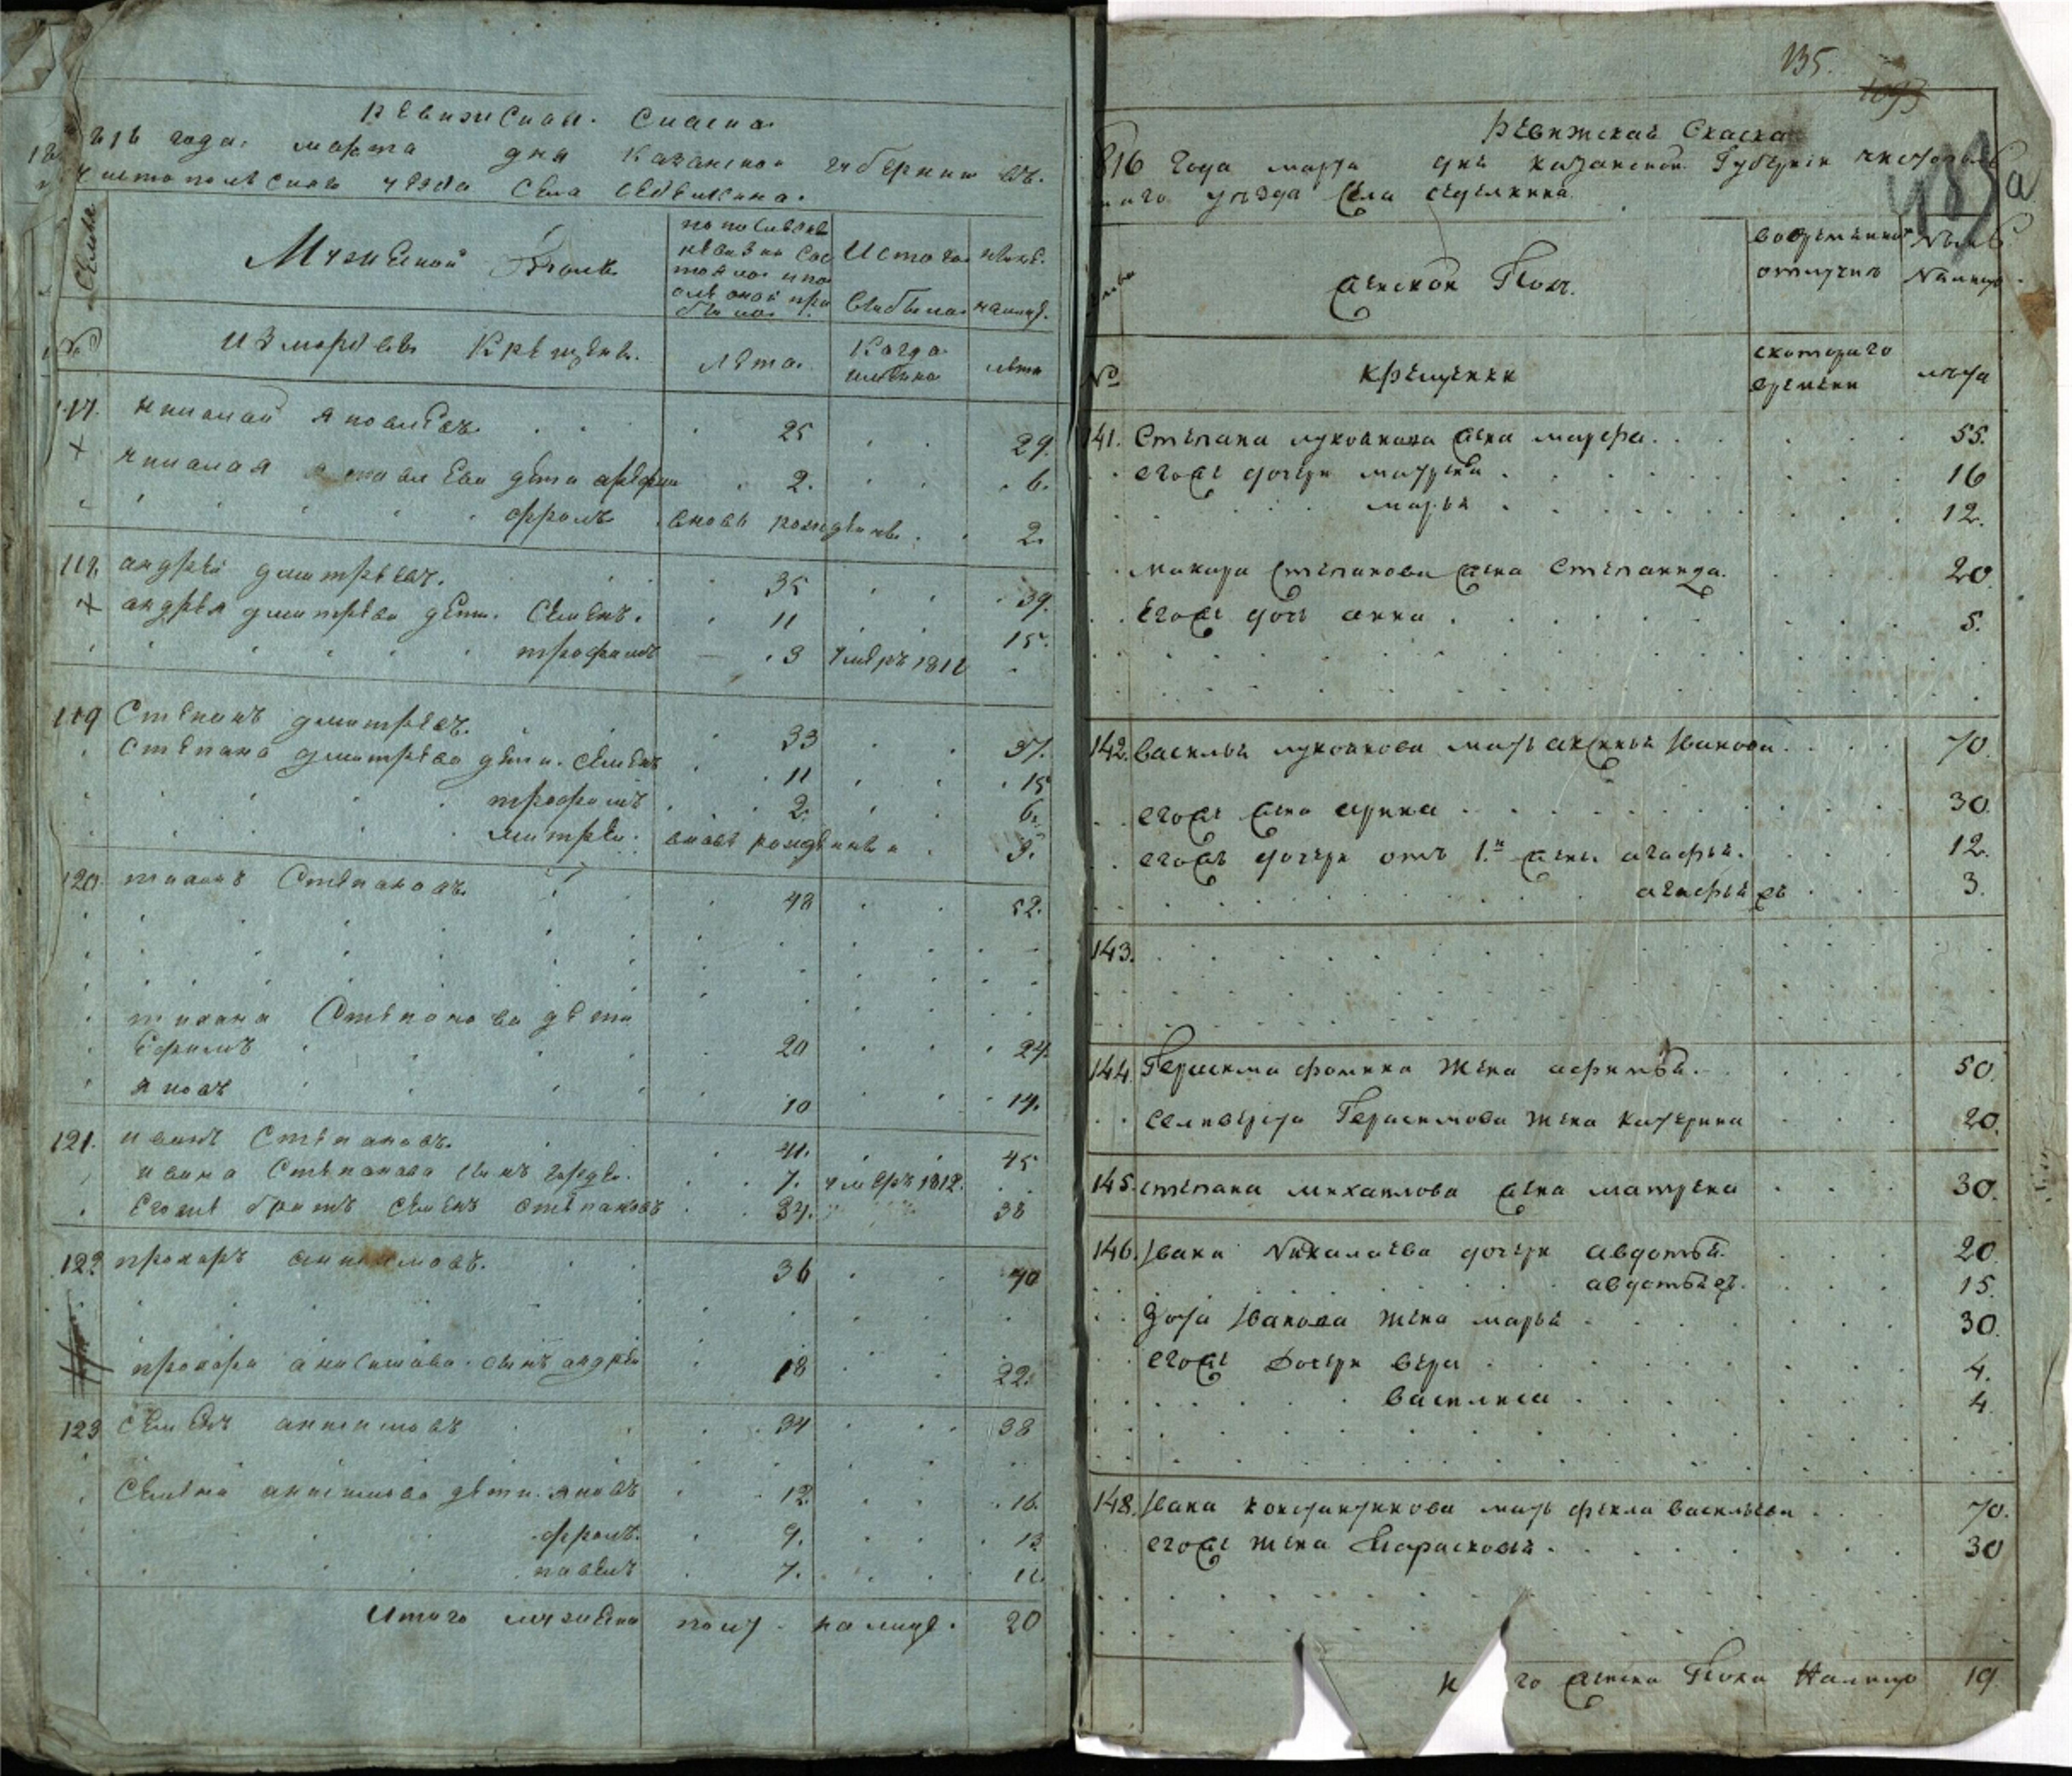 Ревижская Скаска
1816 года марта дня Казанской губернии въ
Чистопольскаго уезда Села Седелкина.
Семьи
Мужеской Полъ
по последней
ревизии сос
тояло и по
сле оной при
было
Изтого
выбыло
ныне
налице
№
Из мордвы Крещены.
Лета.
Когда
имянно
лета
117. николай яковлевъ. 25 29.
николая яковлева дети арефии 2. 6.
фролъ вновь рожденъ. 2.
118. андрей дмитревъ. 35 39.
андрея дмитрева дети. Семенъ. 11 15.
трофимъ 3 умеръ 1812
119 Степанъ дмитревъ. 33 37.
Степана дмитрева дети. Семенъ 11 15
трофимъ 2. 6.
митреи. вновь рожденныи 3.
120. тихонъ Степановъ. 48 52.
тихана Степонова дети
Ефимъ 20 24.
яковъ 10 14.
121. иванъ Степановъ. 41. 45
ивана Степанова сынъ гордеи. 7. умеръ 1812.
Егоже братъ Семенъ Степановъ 34. 38
122 прохоръ анисимовъ. 36 40
прохора анисимова. сынъ андреи 18 22.
123 Семенъ анисимовъ 34 38
Семена анисимова дети. яковъ 12. 16.
фролъ. 9. 13
павелъ 7. 11
Итого мужеска полу налице. 20
135.
1093
Ревижская Скаска
816 Года марта дня казанской Губернии чистополь
каго уезда Села седелкина.
483 а
женской Полъ.
вовременной
отлучке
Ныне
Налицо
№
крещении
скотораго
времени
лета
141. Степана лукоянова жена марфа. 55.
егоже дочери матрена 16
марья 12.
макара Степанова жена Степанида. 20.
Егоже дочь анна 5.
142. василья лукоянова мать аксинья Иванова 70.
егоже жена ирина 30.
егоже дочери отъ 1.й жены агафья. 12.
агафья 3.
143.
144. Герасима фомина жена афимья. 50.
селиверста Герасимова жена катерина 20.
145. степана михаилова жена матрена 30.
146. Ивана Николаева дочери авдотья. 20
авдотья 15.
Зота Иванова жена марья 30.
егоже дочери вера 4.
василиса 4.
148. Ивана константинова мать фекла васильева 70.
егоже жена Парасковья. 30
И го женска Пола Налицо 19